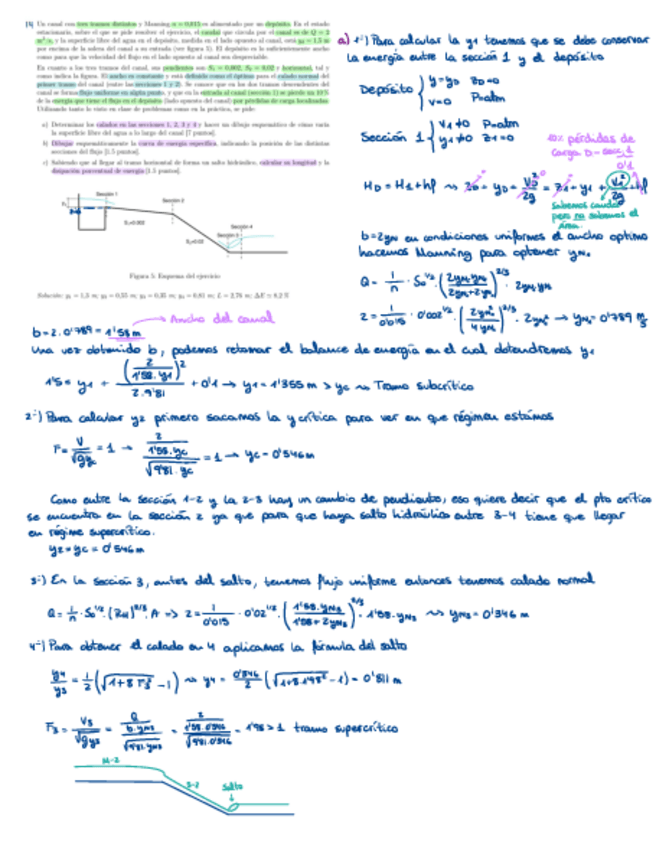 [5] Un canal con tres tramos distintos y Manning n = 0,015 es alimentado por un depósito. En el estado
estacionario, sobre el que se pide resolver el ejercicio, el caudal que circula por el canal es de Q = 2
m³/s, y la superficie libre del agua en el depósito, medida en el lado opuesto al canal, está y₀ = 1.5 m
por encima de la solera del canal a su entrada (ver figura 5). El depósito es lo suficientemente ancho
como para que la velocidad del flujo en el lado opuesto al canal sea despreciable.
En cuanto a los tres tramos del canal, sus pendientes son S₁ = 0,002, S₂ = 0,02 y horizontal, tal y
como indica la figura. El ancho es constante y está definido como el óptimo para el calado normal del
primer tramo del canal (entre las secciones 1 y 2). Se conoce que en los dos tramos descendentes del
canal se forma flujo uniforme en algún punto, y que en la entrada al canal (sección 1) se pierde un 10 %
de la energía que tiene el flujo en el depósito (lado opuesto del canal) por pérdidas de carga localizadas.
Utilizando tanto lo visto en clase de problemas como en la práctica, se pide:
a) Determinar los calados en las secciones 1, 2, 3 y 4 y hacer un dibujo esquemático de cómo varía
la superficie libre del agua a lo largo del canal [7 puntos].
b) Dibujar esquemáticamente la curva de energía específica, indicando la posición de las distintas
secciones del flujo [1.5 puntos].
c) Sabiendo que al llegar al tramo horizontal de forma un salto hidráulico, calcular su longitud y la
disipación porcentual de energía [1.5 puntos].
Sección 1
Sección 2
Sección 4
Sección 3
S₁=0.002
S₂=0.02
Figura 5: Esquema del ejercicio
a) 1-) Para calcular la y1 tenemos que se debe conservar
la energía entre la sección 1 y el depósito
Depósito { y=y₀ z₀=0
v=0 P=atm
Sección 1 { v1≠0 P=atm
y1≠0 z1=0
10% pérdidas de
carga D-secc.1
0'1
H_D = H1 + hf ⇝ z₀ + y₀ + V₀²/2g = z1 + y1 + V1²/2g + hf
Sabemos caudal
pero no sabemos el
área.
b=2yN en condiciones uniformes el ancho optimo
hacemos Manning para obtener yN.
Q = 1/n · S₀^1/2 · (2yN·yN/2yN+2yN)^2/3 · 2yN·yN
2 = 1/0'015 · 0'002^1/2 · (2yN²/4yN)^2/3 · 2yN² → yN = 0'789 m
b=2·0'789 = 1'58m → Ancho del canal
Una vez obtenido b, podemos retomar el balance de energía en el cual obtendremos y1
1'5 = y1 + (2/1'58·y1)²/2·9'81 + 0'1 → y1 = 1'355 m > yc ⇝ Tramo subcrítico
2-) Para calcular y2 primero sacamos la y crítica para ver en que régimen estamos
F = V/√gy = 1 → (2/1'58·yc)/√9'81·yc = 1 → yc = 0'546m
Como entre la sección 1-2 y la 2-3 hay un cambio de pendiente, eso quiere decir que el pto crítico
se encuentra en la sección 2 ya que para que haya salto hidráulico entre 3-4 tiene que llegar
en régime supercrítico.
y2=yc = 0'546 m
3-) En la sección 3, antes del salto, tenemos flujo uniforme entonces tenemos calado normal
Q = 1/n · S₀^1/2 · (RH)^2/3 · A => 2 = 1/0'015 · 0'02^1/2 · (1'58·yN3/1'58+2yN3)^2/3 · 1'58·yN3 ⇝ yN3 = 0'346 m
4-) Para obtener el calado en 4 aplicamos la fórmula del salto
y4/y3 = 1/2 (√1+8F3² -1) ⇝ y4 = 0'346/2 (√1+8·1'98² -1) = 0'811 m
F3 = V3/√gy3 = (Q/b·yN3)/√9'81·yN3 = (2/1'58·0'346)/√9'81·0'346 = 1'98 > 1 tramo supercrítico
M-2
S-2
Salto